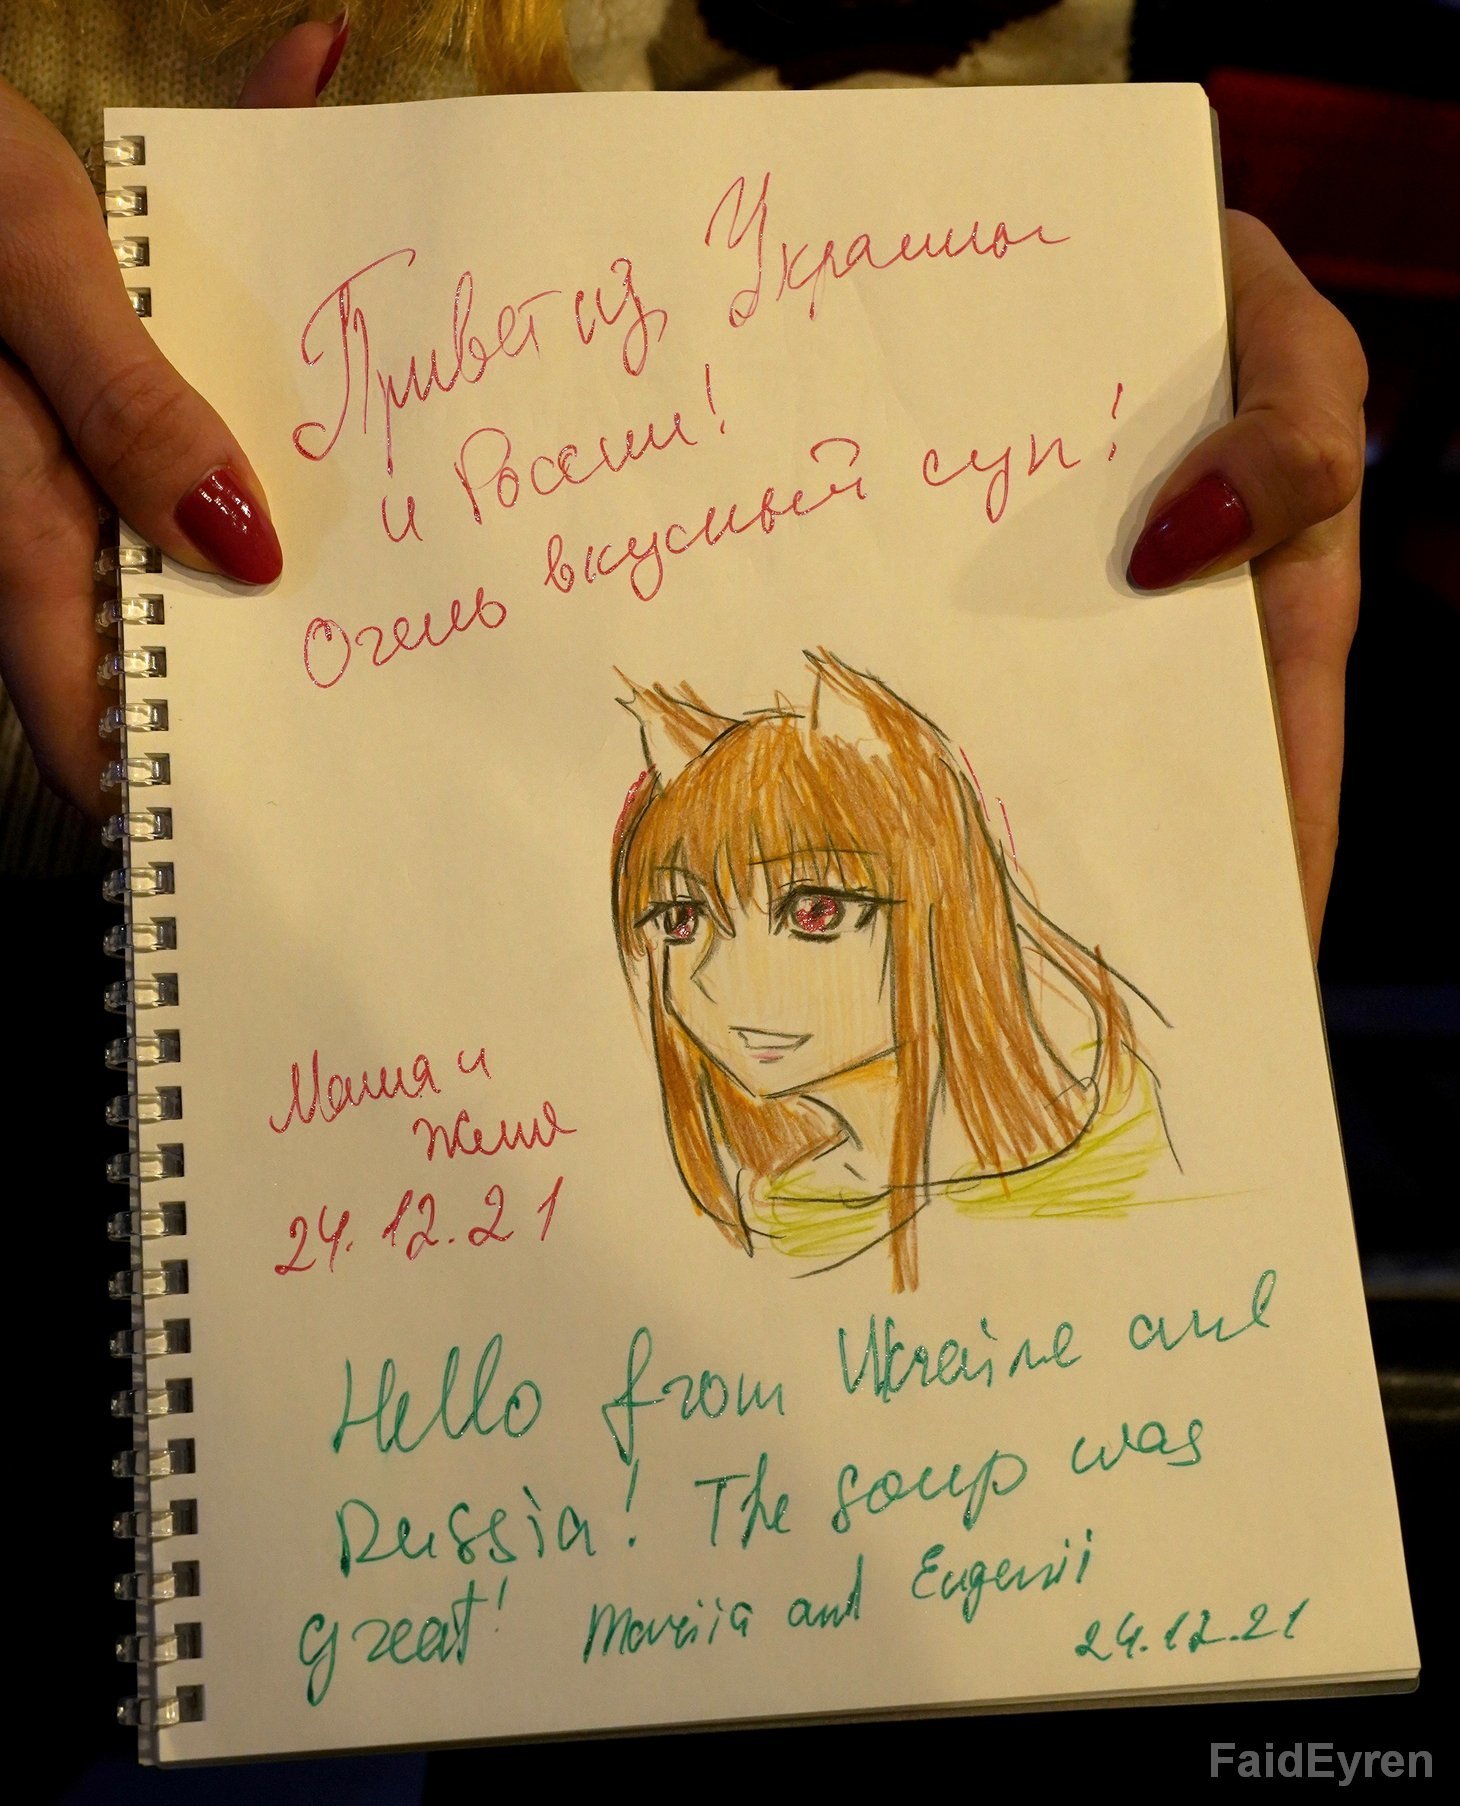 Привет из Украины
и России!
Очень вкусный суп!
Маша и
Женя
24.12.21
Hello from Ukraine and
Russia! The soup was
great! Mariia and Eugenii
24.12.21
FaidEyren